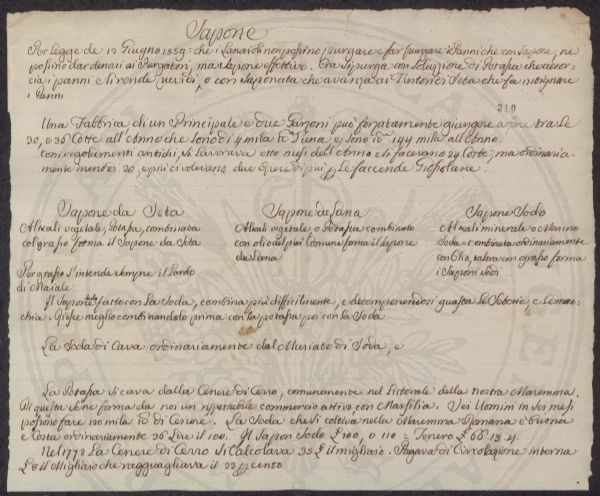 Sapone
Per Legge de 17 Giugno 1559 = che i Lanaioli non possino purgare e far purgare i Panni che con Sapone, ne
possino dar denari ai Purgatori, ma Sapone effettivo. Ora si purga con Soluzione di Potassa che
i panni e si rende ruvidi, o con Saponata che avanza ai Tintori di Seta che fa intignare
i Panni
310
Una Fabbrica di un Principale e due Garzoni può forzatamente giungere a fare tra le
30, e 36 Cotte all'Anno che sono di 4 mila l'una, e sono 144 mila all'Anno
Coi regolamenti antichi, si Lavorava otto mesi dell'Anno e si facevano 24 Cotte, ma ordinaria-
mente meno di 20, e poi ci volevano due Opere di più per Le faccende Grossolane.
Sapone da Seta
Alkali vegetale, Potassa, combinata
col grasso forma il Sapone da Seta
Per grasso s'intende sempre il Lardo
di Maiale
Sapone da Lana
Alkali vegetale, o Potassa combinato
con olio del più Comune forma il Sapone
da Lana
Sapone Sodo
Alkali minerale o Marino
Soda = combinata ordinariamente
con Olio, talora con grasso forma
i Saponi Sodi
Il Sapone fatto con La Soda, combina più difficilmente, e decomponendosi guasta Le Seterie, e Le mac-
chia. Riesce meglio combinandolo prima con la potassa poi con la Soda
La Soda si Cava ordinariamente dal Muriato di Soda, e
La Potassa si cava dalla Cenere di Cerro, comunemente nel Littorale della nostra Maremma.
Di questa se ne forma da noi un rispettabile commercio attivo con Marsilia. Sei Uomini in sei mesi
possono fare 120 mila di Cenere. La Soda che si coltiva nella Maremma Pisana è buona
e Costa ordinariamente 36 Lire il 100. Il Sapon Sodo £ 100, o 110 = Tenero £ 66.13.4
Nel 1772 La Cenere di Cerro si Calcolava 35 £ il migliaio. Pagava di Circolazione interna
£ 8 il Migliaio che ragguagliava il 23 per cento